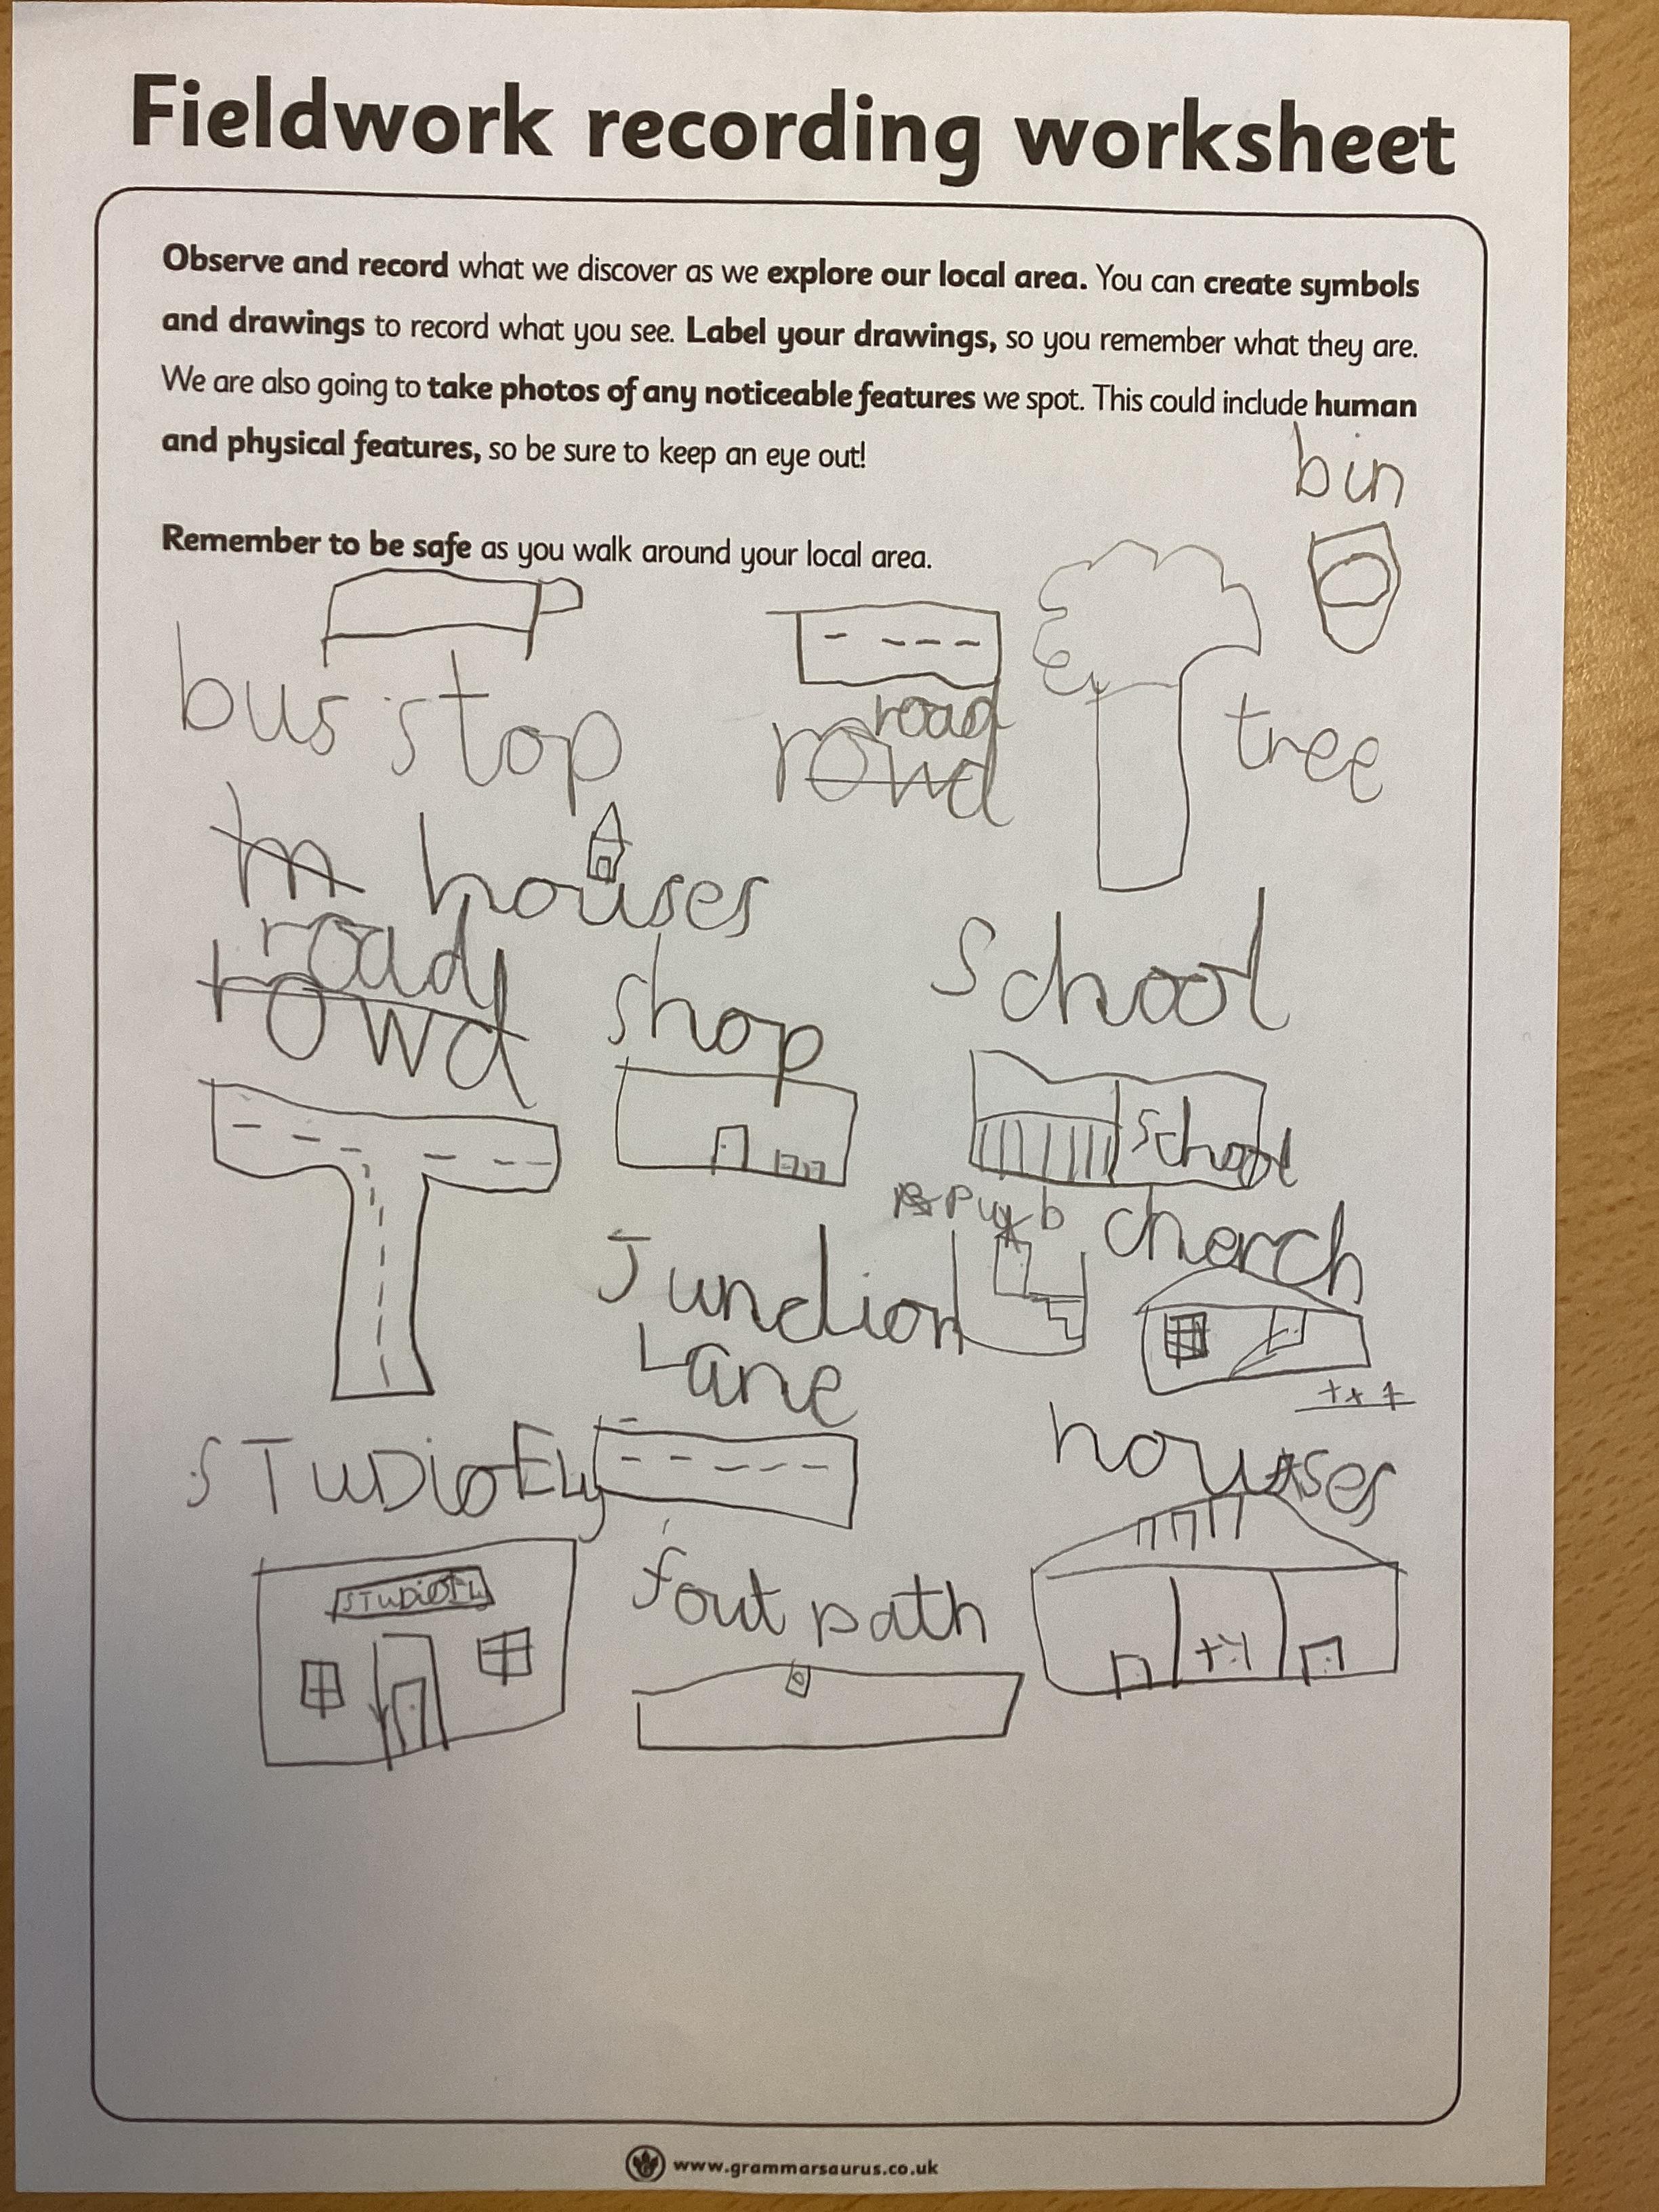 Fieldwork recording worksheet
Observe and record what we discover as we explore our local area. You can create symbols
and drawings to record what you see. Label your drawings, so you remember what they are.
We are also going to take photos of any noticeable features we spot. This could include human
and physical features, so be sure to keep an eye out!
bin
Remember to be safe as you walk around your local area.
bus stop
road
rowd
tree
houses
road
rowd
shop
school
school
Pub
cherch
Junction
Lane
STUDiOELY
houses
STUDiOELY
fout path
www.grammarsaurus.co.uk